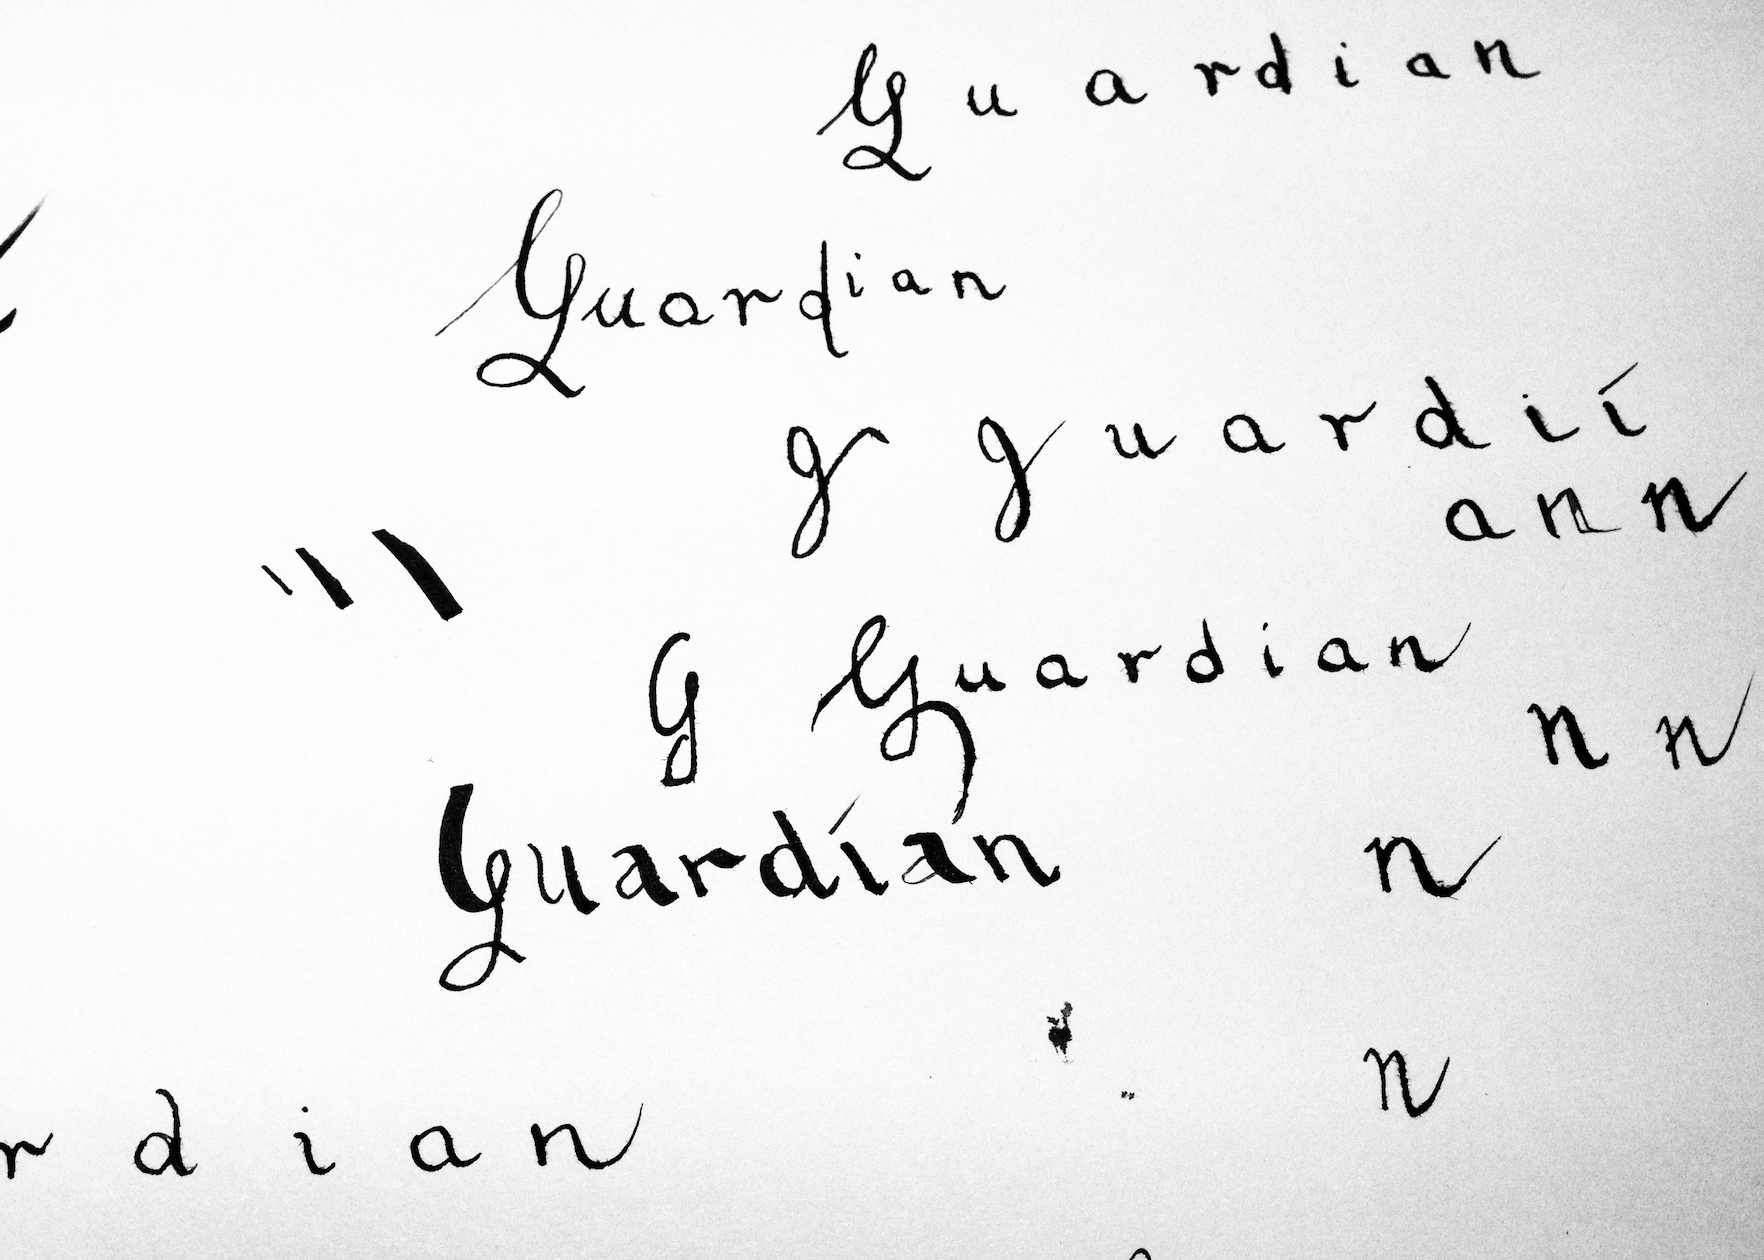 Guardian
Guardian
g guardií
ann
G Guardian
n n
Guardían n
n
rdian